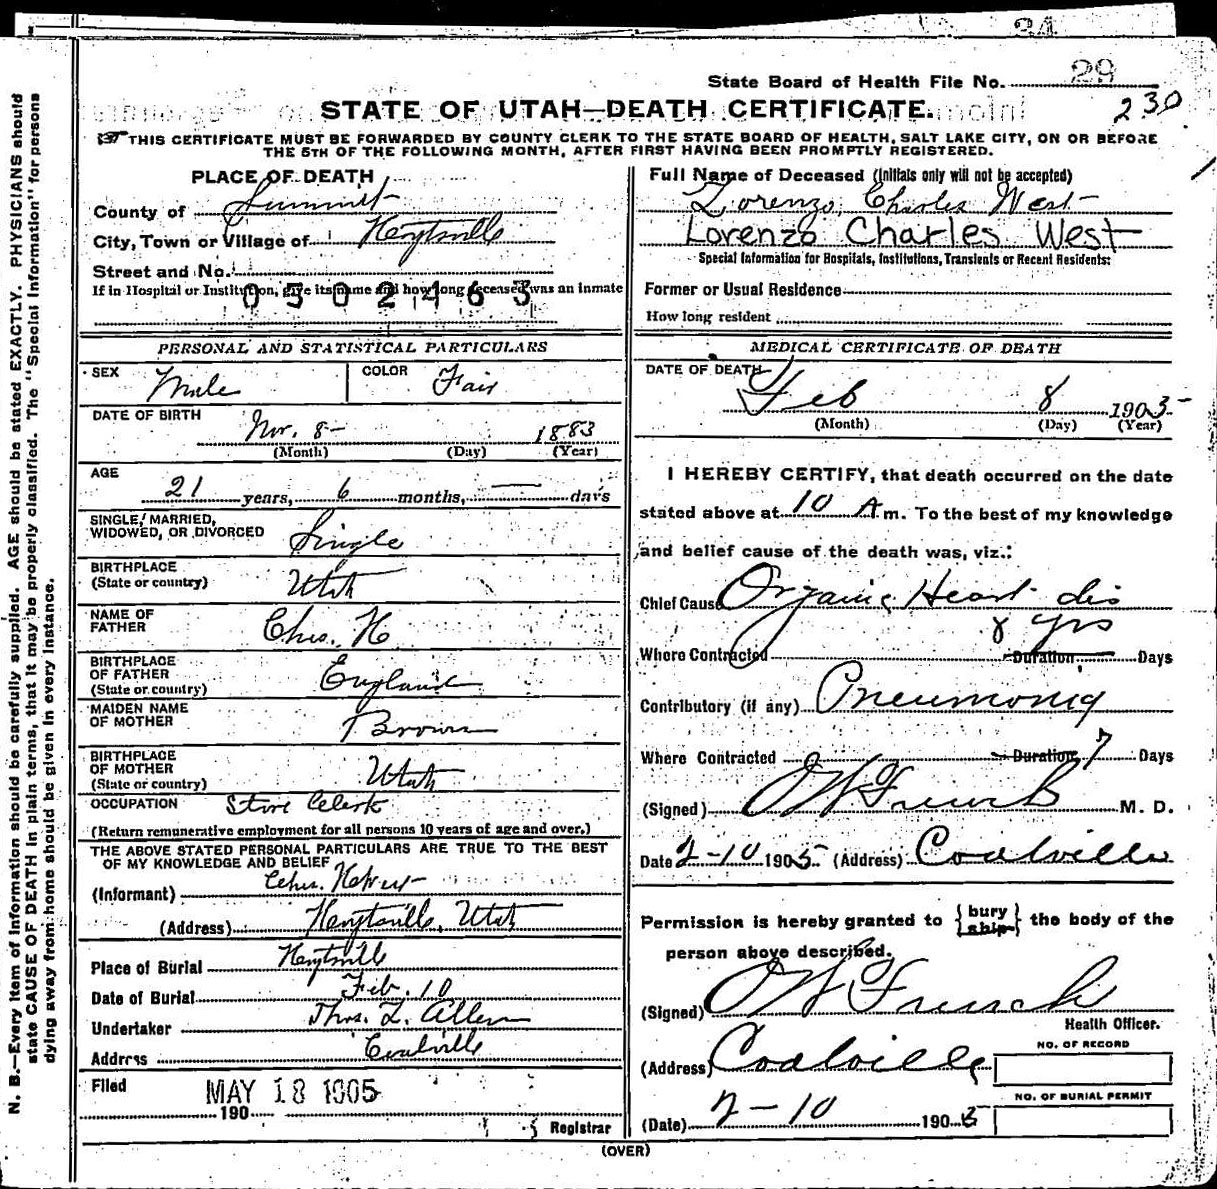 34
State Board of Health File No. 29
STATE OF UTAH—DEATH CERTIFICATE.
230
☞ THIS CERTIFICATE MUST BE FORWARDED BY COUNTY CLERK TO THE STATE BOARD OF HEALTH, SALT LAKE CITY, ON OR BEFORE
THE 5TH OF THE FOLLOWING MONTH, AFTER FIRST HAVING BEEN PROMPTLY REGISTERED.
N. B.—Every item of information should be carefully supplied. AGE should be stated EXACTLY. PHYSICIANS should
state CAUSE OF DEATH in plain terms, that it may be properly classified. The "Special Information" for persons
dying away from home should be given in every instance.
PLACE OF DEATH
County of Summit
City, Town or Village of Hoytsville
Street and No.
If in Hospital or Institution, give its name and how long deceased was an inmate
0502463
PERSONAL AND STATISTICAL PARTICULARS
SEX Male COLOR Fair
DATE OF BIRTH Nov. 8— 1883
(Month) (Day) (Year)
AGE
21 years, 6 months, — days
SINGLE, MARRIED,
WIDOWED, OR DIVORCED Single
BIRTHPLACE
(State or country) Utah
NAME OF
FATHER Chas. H
BIRTHPLACE
OF FATHER
(State or country) England
MAIDEN NAME
OF MOTHER Brown
BIRTHPLACE
OF MOTHER
(State or country) Utah
OCCUPATION Store Clerk
(Return remunerative employment for all persons 10 years of age and over.)
THE ABOVE STATED PERSONAL PARTICULARS ARE TRUE TO THE BEST
OF MY KNOWLEDGE AND BELIEF
(Informant) Chas. H West
(Address) Hoytsville, Utah
Place of Burial Hoytsville
Date of Burial Feb. 10
Undertaker Thos. L. Allen
Address Coalville
Filed MAY 18 1905
190
Registrar
Full Name of Deceased (Initials only will not be accepted)
Lorenzo Charles West
Lorenzo Charles West
Special Information for Hospitals, Institutions, Transients or Recent Residents:
Former or Usual Residence
How long resident
MEDICAL CERTIFICATE OF DEATH
DATE OF DEATH
Feb 8 1905
(Month) (Day) (Year)
I HEREBY CERTIFY, that death occurred on the date
stated above at 10 A m. To the best of my knowledge
and belief cause of the death was, viz.:
Chief Cause Organic Heart dis
8 yrs
Where Contracted Duration Days
Contributory (if any) Pneumonia
Where Contracted Duration 7 Days
(Signed) M. D.
Date 2-10 1905 (Address) Coalville
Permission is hereby granted to {bury ship} the body of the
person above described.
(Signed)
Health Officer.
(Address) Coalville
NO. OF RECORD
NO. OF BURIAL PERMIT
(Date) 2-10 1905
(OVER)